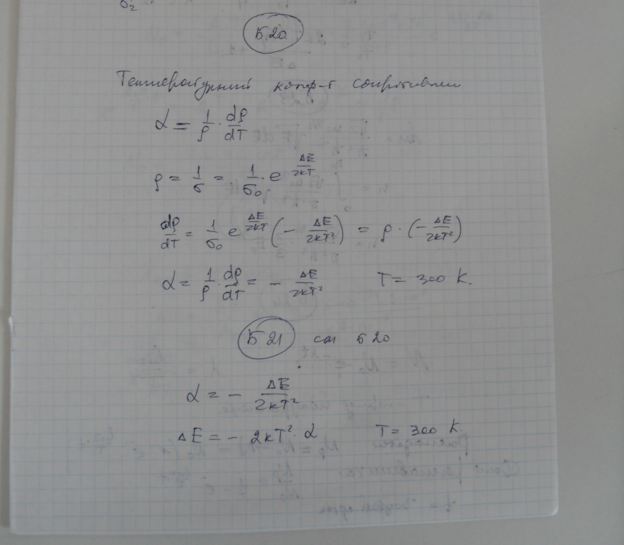 σ₂
Б20
Температурний коэф-т сопротивлен
α = 1/ρ · dρ/dT
ρ = 1/σ = 1/σ₀ · e^(ΔE/2kT)
dρ/dT = 1/σ₀ e^(ΔE/2kT) (- ΔE/2kT²) = ρ · (- ΔE/2kT²)
α = 1/ρ · dρ/dT = - ΔE/2kT² T = 300 K.
Б21 см Б20
α = - ΔE/2kT²
ΔE = - 2kT² · α T = 300 K.